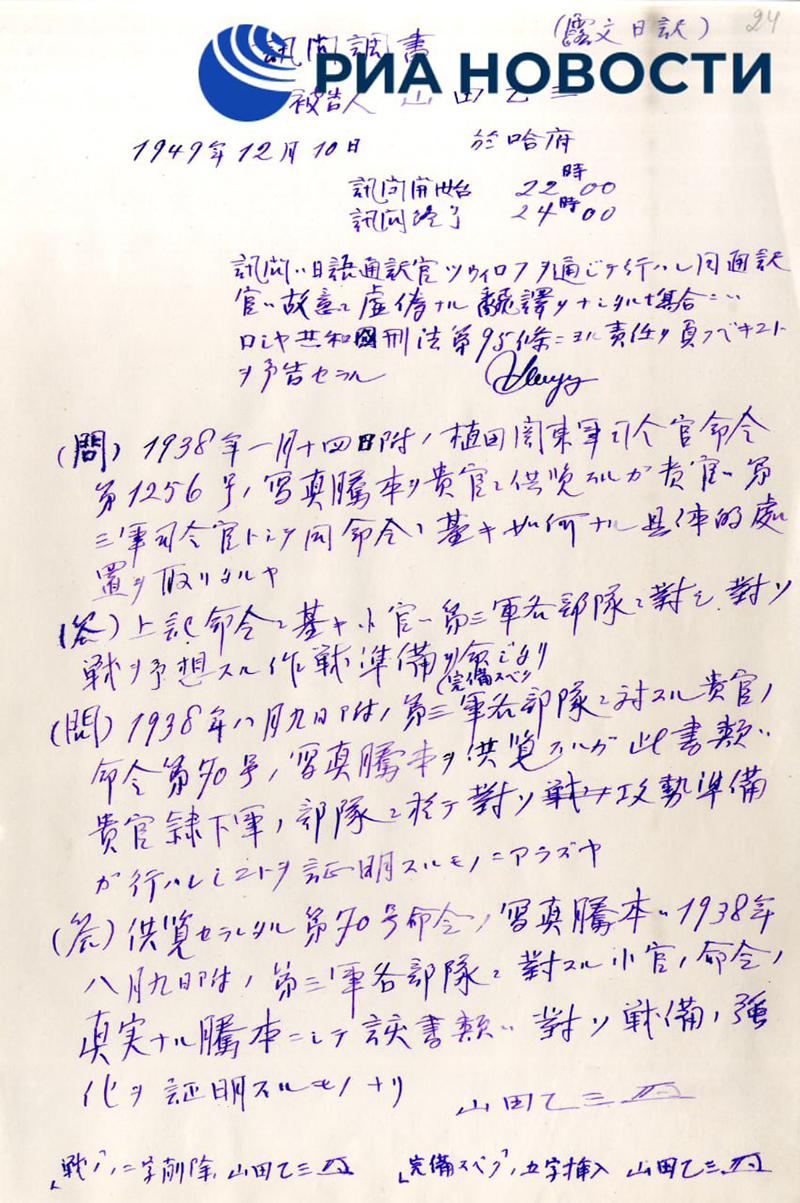 24
(露文日訳)
訊問調書
РИА НОВОСТИ
被告人 山田乙三
1949年12月10日 於哈府
訊問開始 22時00
訊問終了 24時00
訊問ハ日語通訳官ツヴィロフヲ通ジテ行ハレ同通訳
官ハ故意ニ虚偽ナル飜譯ヲナシタル場合ニハ
ロシヤ共和国刑法第95條ニヨル責任ヲ負フベキコト
ヲ予告セラル
(問) 1938年一月十四日附ノ植田関東軍司令官命令
第1256号ノ写真騰本ヲ貴官ニ供覧スルガ貴官ハ第
三軍司令官トシテ同命令ニ基キ如何ナル具体的處
置ヲ取リタルヤ
(答) 上記命令ニ基キ小官ハ第三軍各部隊ニ對シ對ソ
戦ヲ予想スル作戦準備ヲ命ジタリ
(完備スベク)
(問) 1938年八月九日附ノ第三軍各部隊ニ対スル貴官ノ
命令第70号ノ写真騰本ヲ供覧スルガ此書類ハ
貴官隷下軍ノ部隊ニ於テ對ソ攻勢準備
ガ行ハレシコトヲ証明スルモノニアラズヤ
(答) 供覧セラレタル第70号命令ノ写真騰本ハ1938年
八月九日附ノ第三軍各部隊ニ對スル小官ノ命令ノ
真実ナル騰本ニシテ該書類ハ對ソ戦備ノ強
化ヲ証明スルモノナリ
山田乙三
「戦」ノ二字削除 山田乙三
「完備スベク」ノ五字挿入 山田乙三